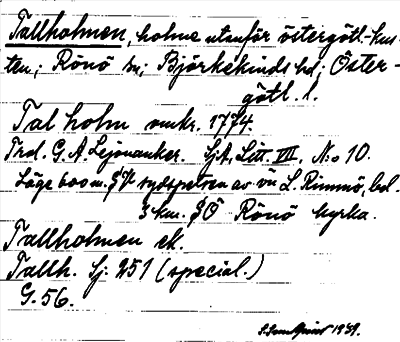 Tallholmen, holme utanför östergötl.-kus-
ten; Rönö sn; Björkekinds hd; Öster-
götl. l.
Tal holm omkr. 1774.
Trol. G. A. Lejonanker. Sj.A, Litt. VII, N:o 10.
Läge 600 m. SV sydspetsen av ön L. Rimmö, bel.
3 km. SÖ Rönö kyrka.
Tallholmen ek.
Tallh. Sj. 251 (special.)
G. 56.
1939.